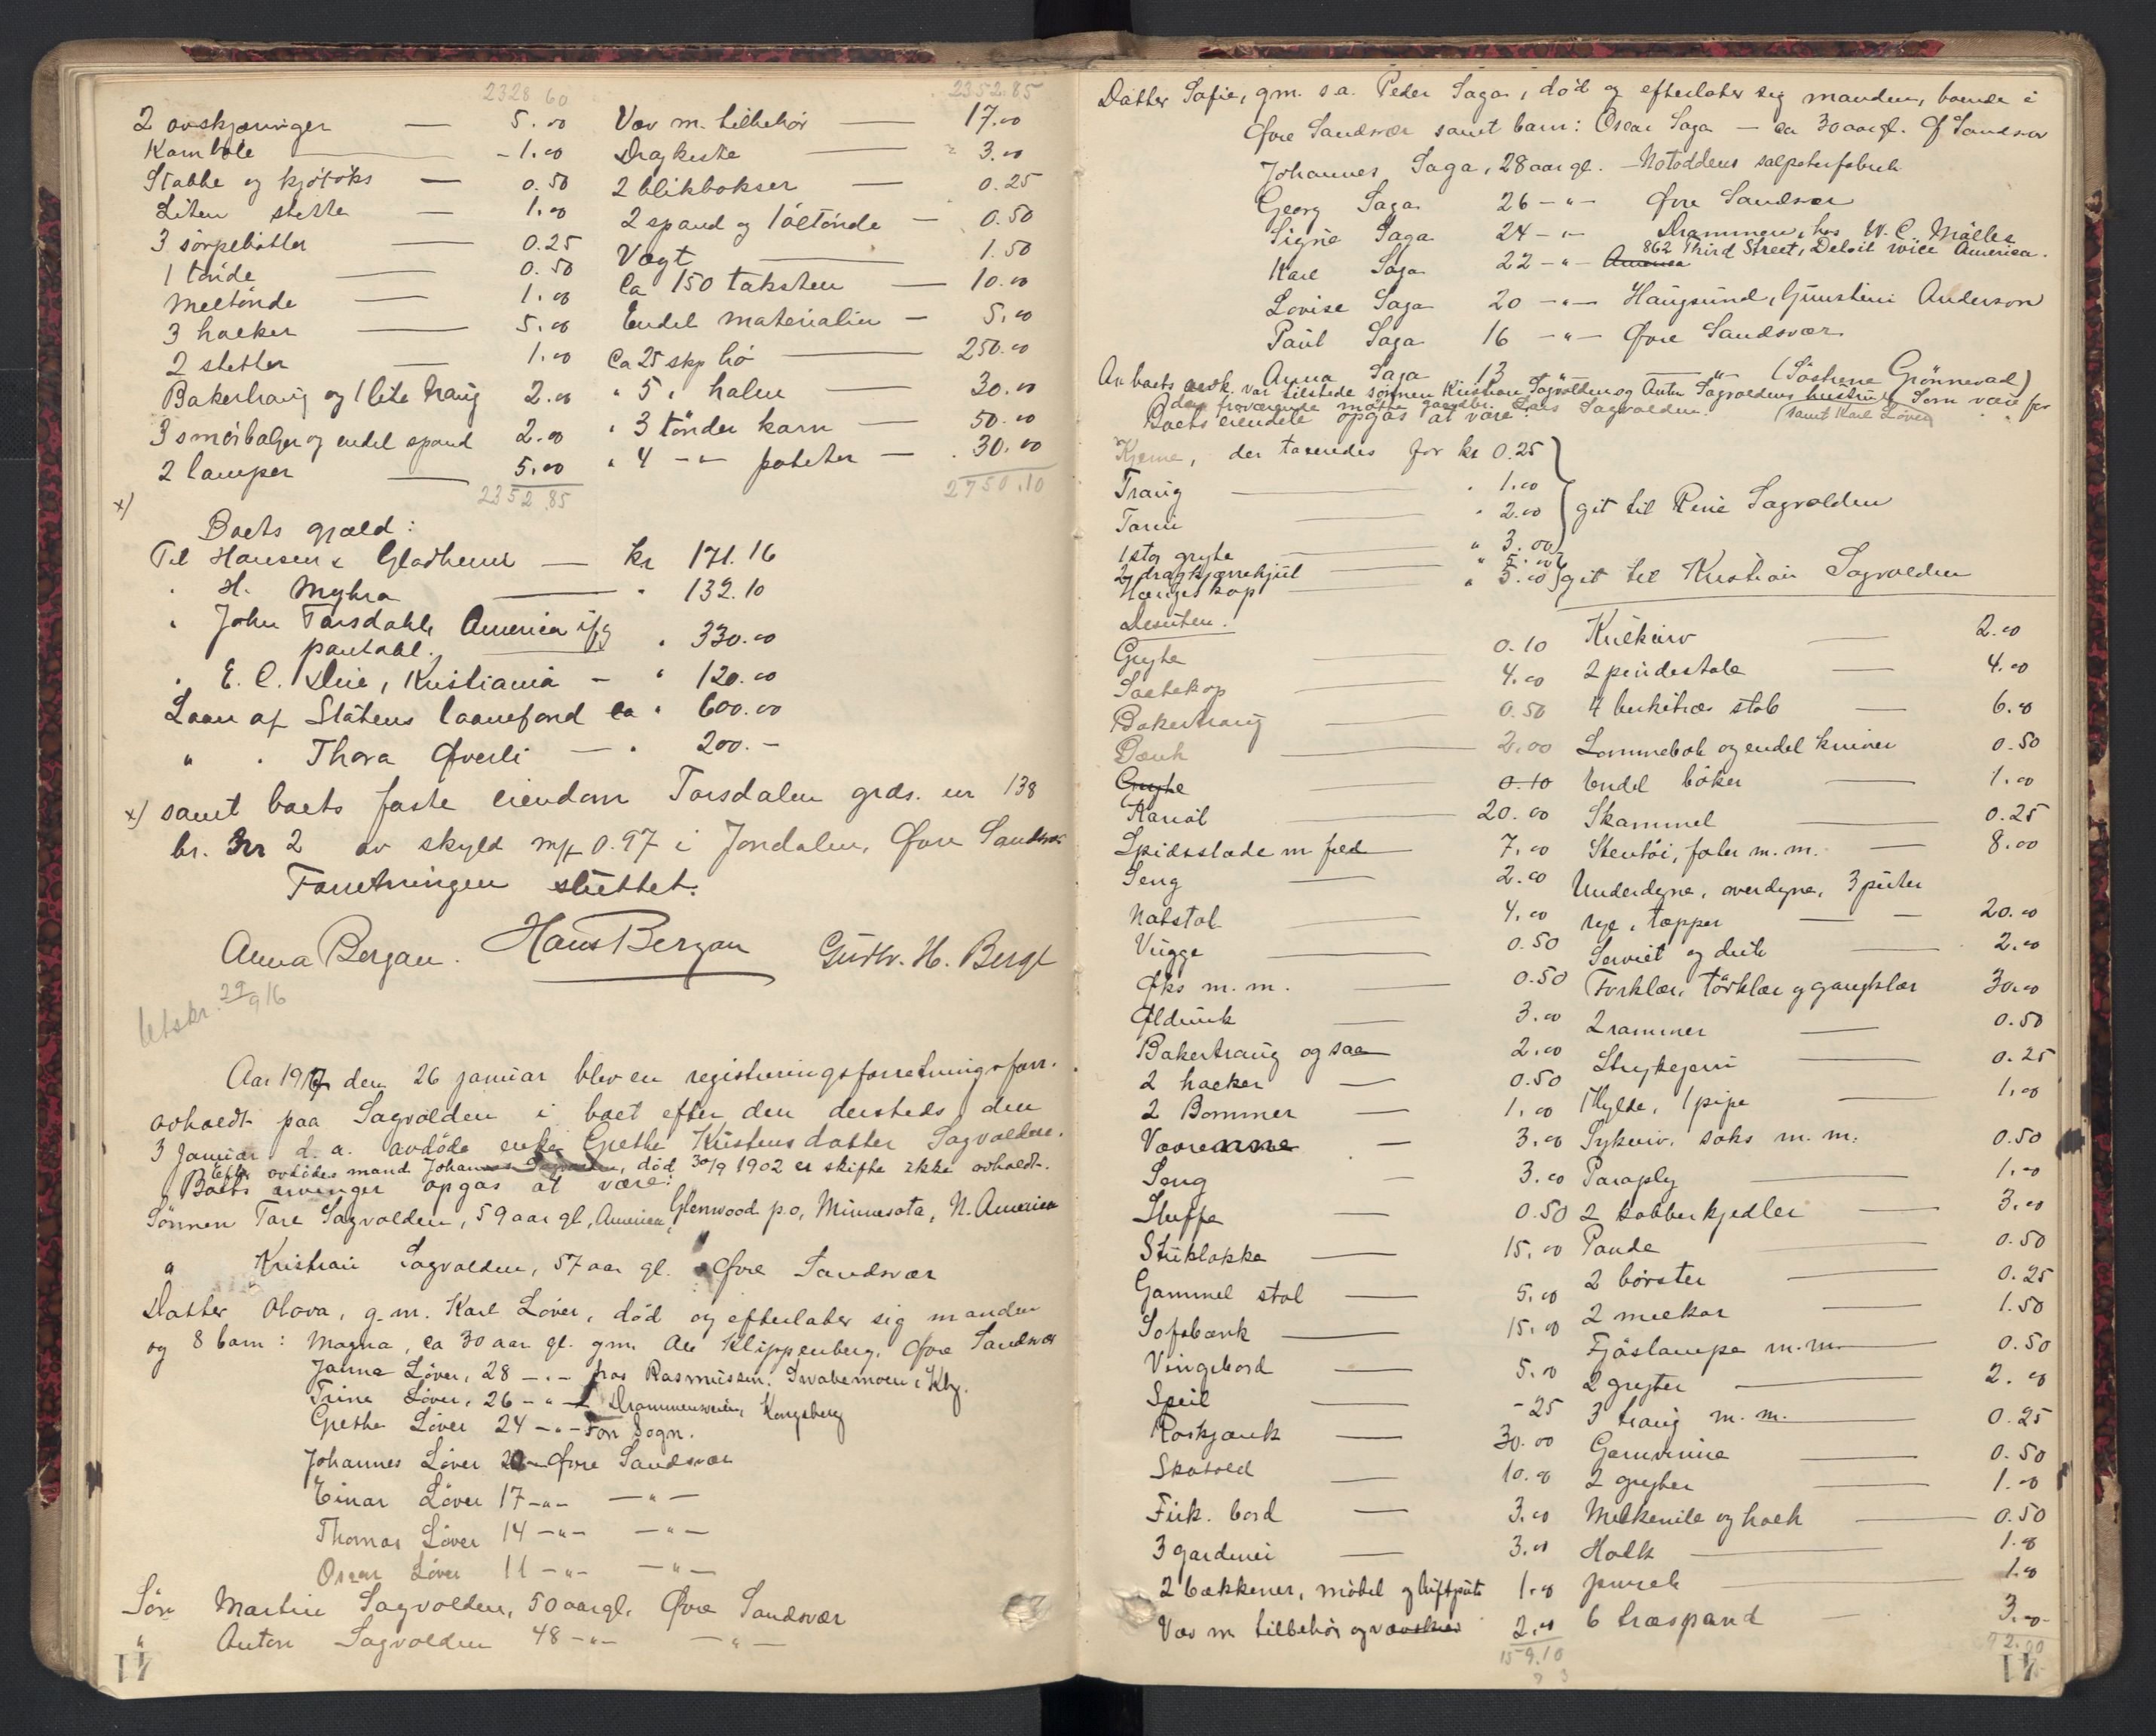 2328 60
2 avskjæringer — 5.00
Kambole — 1.00
Stabbe og kjötöks — 0.50
Liten slette — 1.00
3 sörpebötter — 0.25
1 tönde — 0.50
Meltönde — 1.00
3 hacker — 5.00
2 sletter — 1.00
Bakertraug og 1 lite traug 2.00
3 smörbalger og endel spand 2.00
2 lamper — 5.00
2352.85
2352.85
Væv m. tilbehör — 17.00
Dragkiste — 3.00
2 blikbokser — 0.25
2 spand og 1 öltönde — 0.50
Vægt — 1.50
Ca 150 taksten — 10.00
Endel materialier — 5.00
Ca 25 skp hö — 250.00
" 5 " halm — 30.00
" 3 tönder korn — 50.00
" 4 -"- poteter — 30.00
2750.10
x)
Boets gjæld:
Til Hansen & Gladheim — kr 171.16
" H. Myhra — " 132.10
" John Torsdahl, America ifg
pantobl. — " 330.00
" E. C. Due, Kristiania — " 120.00
Laan af Statens laanefond ca " 600.00
" " Thora Øverli — " 200.-
x) samt boets faste eiendom Torsdalen grds. nr 138
br. nr 2 av skyld mk 0.97 i Jondalen, Øvre Sandsvær
Forretningen sluttet.
Anna Bergan. Hans Bergan Gustv. H. Berge
Utskr. 29/9 16
Aar 1917 den 26 januar blev en registreringsforretning forr.
avholdt paa Sagvolden i boet efter den dersteds den
3 januar d. a. avdöde enke Grethe Kristensdatter Sagvolden.
Efter avdödes mand Johannes Sagvolden, död 30/9 1902 er skifte ikke avholdt.
Boets arvinger opgas at være:
Sönnen Tore Sagvolden, 59 aar gl, America, Glenwood p.o, Minnesota, N. America
" Kristian Sagvolden, 57 aar gl. Øvre Sandsvær
Datter Olava, g.m. Karl Löver, död og efterlater sig manden
og 8 barn: Magna, ca 30 aar gl. gm. Ole Klippenberg, Øvre Sandsvær
Janna Löver, 28 -"- hos Rasmussen, Svabemoen, Kbg.
Trine Löver, 26 -"- Drammensveien, Kongsberg
Grethe Löver 24 -"- Fon Sogn.
Johannes Löver 20 -"- Øvre Sandsvær
Einar Löver 17 -"- -"-
Thomas Löver 14 -"- -"-
Oscar Löver 11 -"- -"-
Sön Martin Sagvolden, 50 aar gl. Øvre Sandsvær
" Anton Sagvolden 48 -"- -"-
41
Datter Sofie, gm. s.a. Peder Saga, död og efterlater sig manden, boende i
Øvre Sandsvær samt barn: Oscar Saga — ca 30 aar gl. Ø. Sandsvær
Johannes Saga, 28 aar gl. — Notoddens salpeterfabrik
Georg Saga 26 -"- Øvre Sandsvær
Signe Saga 24 -"- Drammen, hos W. C. Möller
Karl Saga 22 -"- America 862 Third Street, Beloit Wice America.
Lovise Saga 20 -"- Haugsund, Gunstein Anderson
Paul Saga 16 -"- Øvre Sandsvær
Anna Saga 13 -"- -"- (Söstrene Grönnevad)
Av boets arvk. var tilstede sönnen Kristian Sagvolden og Anton Sagvoldens hustru. Som værge for
den fraværende mötte gaardbr. Lars Sagvolden. (samt Karl Löver)
Boets eiendele opgas at være:
Kjerne, der taxeredes for kr 0.25
Traug — " 1.00
Tarin — " 2.00
1 stor gryte — " 3.00
git til Rene Sagvolden
2 dragkjærrehjul — " 5.00
Hængeskap — " 5.00
git til Kristian Sagvolden
Desuten.
Gryte — 0.10
Saltekop — 4.00
Bakertraug — 0.50
Bænk — 2.00
Gryte — 0.10
Kariol — 20.00
Spidsslæde m fæld — 7.00
Seng — 2.00
Natstol — 4.00
Vugge — 0.50
Øks m. m. — 0.50
Øldunk — 3.00
Bakertraug og saa — 2.00
2 hacker — 0.50
2 Bommer — 1.00
Vaarenne — 3.00
Seng — 3.00
Sluffe — 0.50
Stuklokke — 15.00
Gammel stol — 5.00
Sofabænk — 15.00
Vingebord — 5.00
Speil — -25
Roskjænk — 30.00
Skatold — 10.00
Firk. bord — 3.00
3 gardiner — 3.00
2 bækkener, möbel og luftpute 1.00
Væv m tilbehör og vævskeer 2.00
159.10
Kulkurv — 2.00
2 pindestole — 4.00
4 birketræs stole — 6.00
Lommebok og endel kniver 0.50
Endel böker — 1.00
Skammel — 0.25
Stentöi, fater m. m. — 8.00
Underdyne, overdyne, 3 puter
rye, tæpper — 20.00
Serviet og duk — 2.00
Forklær, törklær og gangklær 30.00
2 rammer — 0.50
Strykejern — 0.25
1 hylde, 1 pipe — 1.00
Sykurv, saks m. m. 0.50
Paraply — 1.00
2 kobberkjedler — 3.00
Pande — 0.50
2 börster — 0.25
2 melkar — 1.50
Fjöslampe m.m. — 0.50
2 gryter — 2.00
3 traug m. m. — 0.25
Garnvinne — 0.50
2 gryter — 1.00
Melkesile og holk — 0.50
Holk — 1.00
— 1.00
6 træspand — 3.00
92.00
41